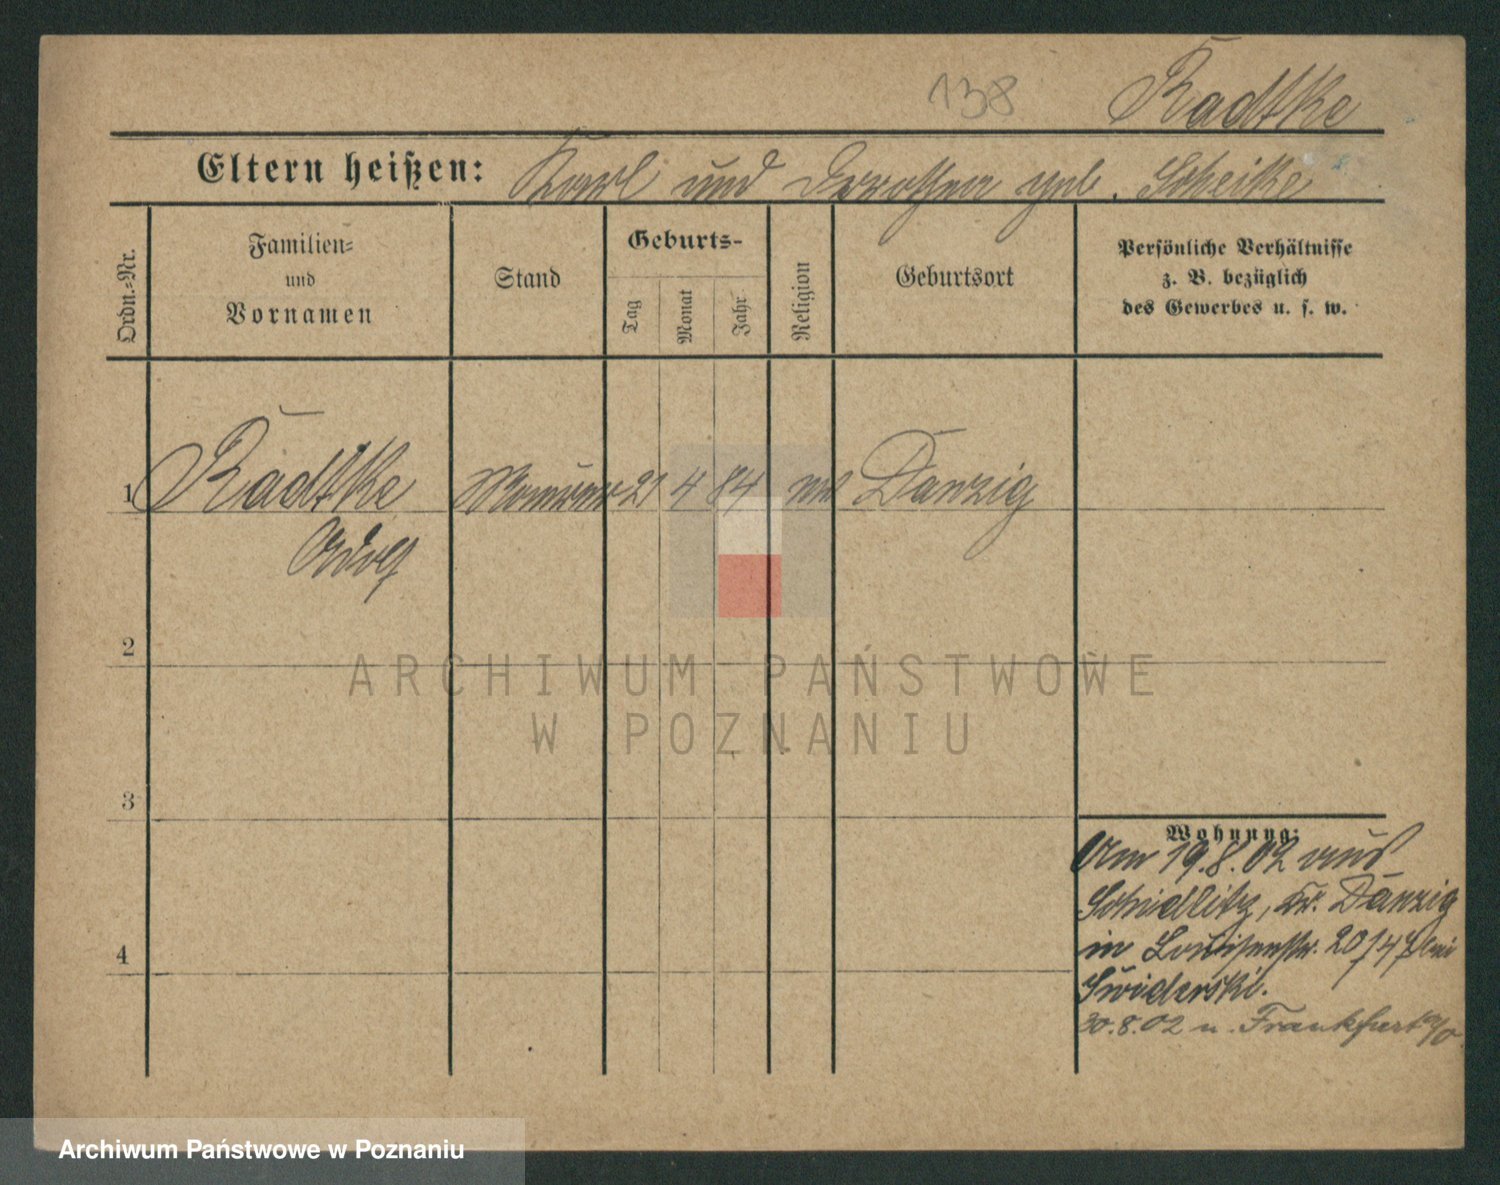 138
Radtke
Eltern heißen: Karl und Dorothea geb. Scheike
Ordn.-Nr.
Familien-
und
Vornamen
Stand
Geburts-
Tag
Monat
Jahr
Religion
Geburtsort
Persönliche Verhältnisse
z. B. bezüglich
des Gewerbes u. s. w.
1 Radtke Maurer 21 4 84 ev Danzig
Adolf
2
ARCHIWUM PAŃSTWOWE
W POZNANIU
3
Wohnung:
Am 19.8.02 aus
Schidlitz, Kr. Danzig
in Louisenstr. 20 bei
Swiderski.
4
30.8.02 n. Frankfurt a/O
Archiwum Państwowe w Poznaniu